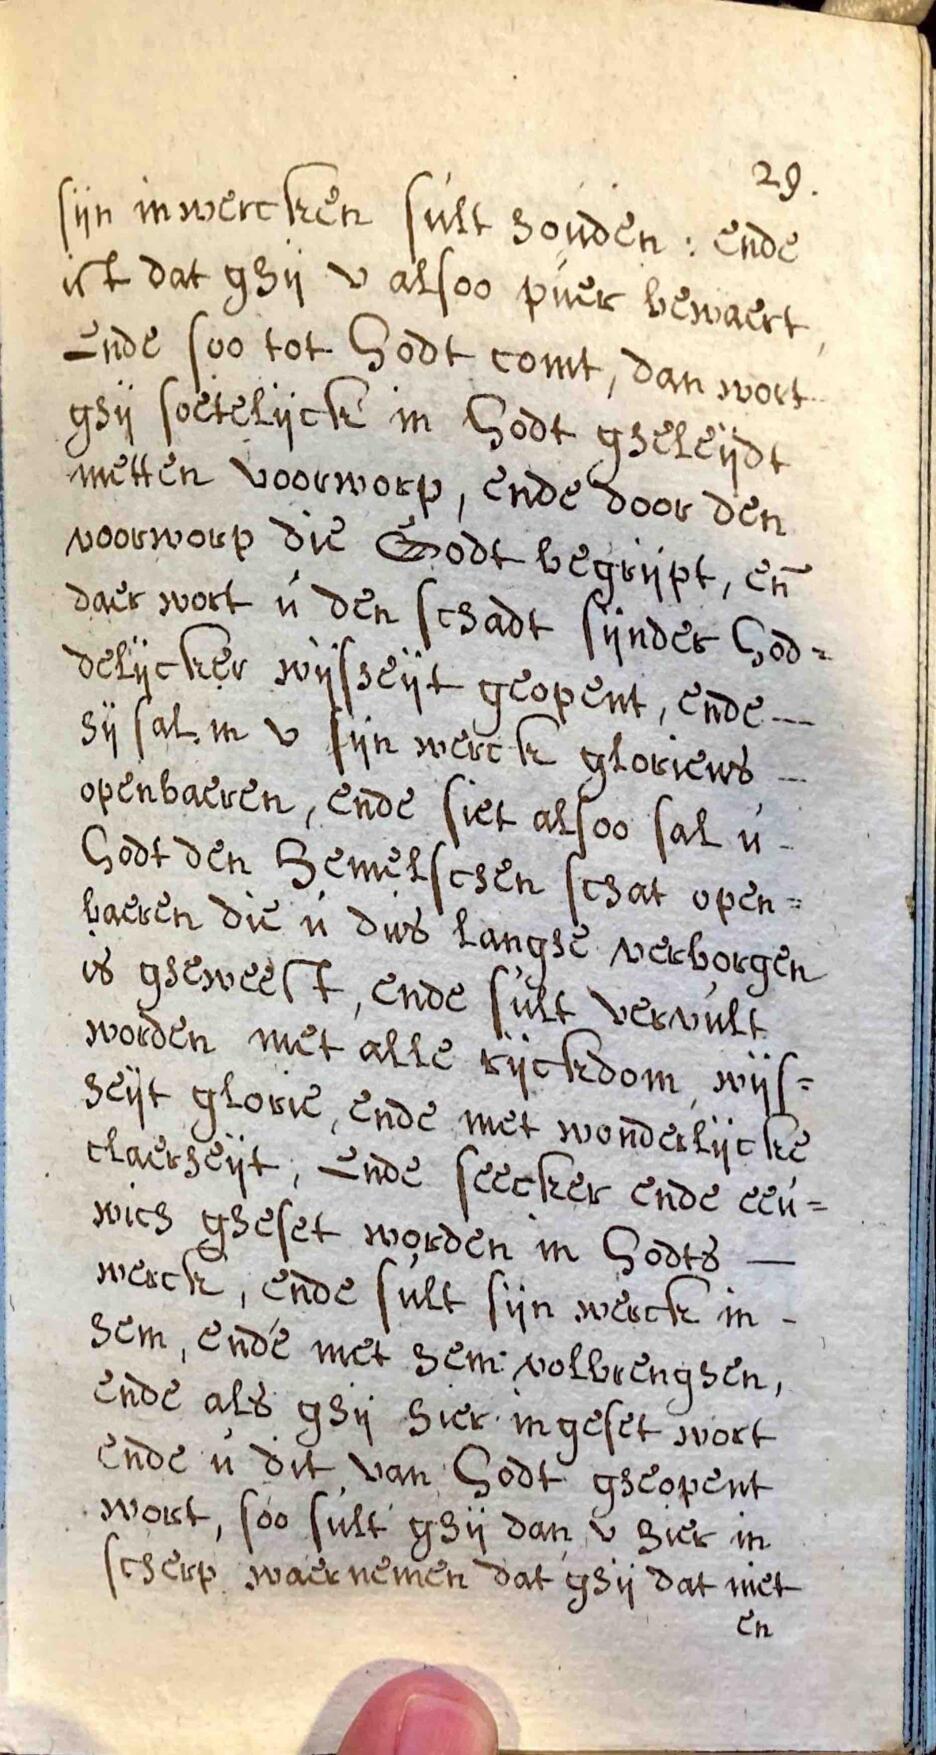 29.
sijn inwercken sult houden : ende
ist dat ghij v alsoo puer bewaert,
Ende soo tot Godt comt, dan wort
ghij soetelijck in Godt gheleijdt
metten voorworp, ende door den
voorworp die Godt begrijpt, en̄
daer wort ú den schadt sijnder God=
delijcker wijsheijt geopent, ende —
hij sal in v sijn werck glorieus —
openbaeren, ende siet alsoo sal ú -
Godt den Hemelschen schat open=
baeren die ú dus langhe verborgen
is gheweest, ende sult vervult
worden met alle rijckdom, wijs=
heijt glorie, ende met wonderlijcke
claerheijt, Ende seecker ende eeu=
wich gheset worden in Godts —
werck, ende sult sijn werck in -
hem, ende met hem volbrenghen,
ende als ghij hier in geset wort
ende ú dit van Godt gheopent
wort, soo sult ghij dan v hier in
scherp waernemen dat ghij dat niet
en